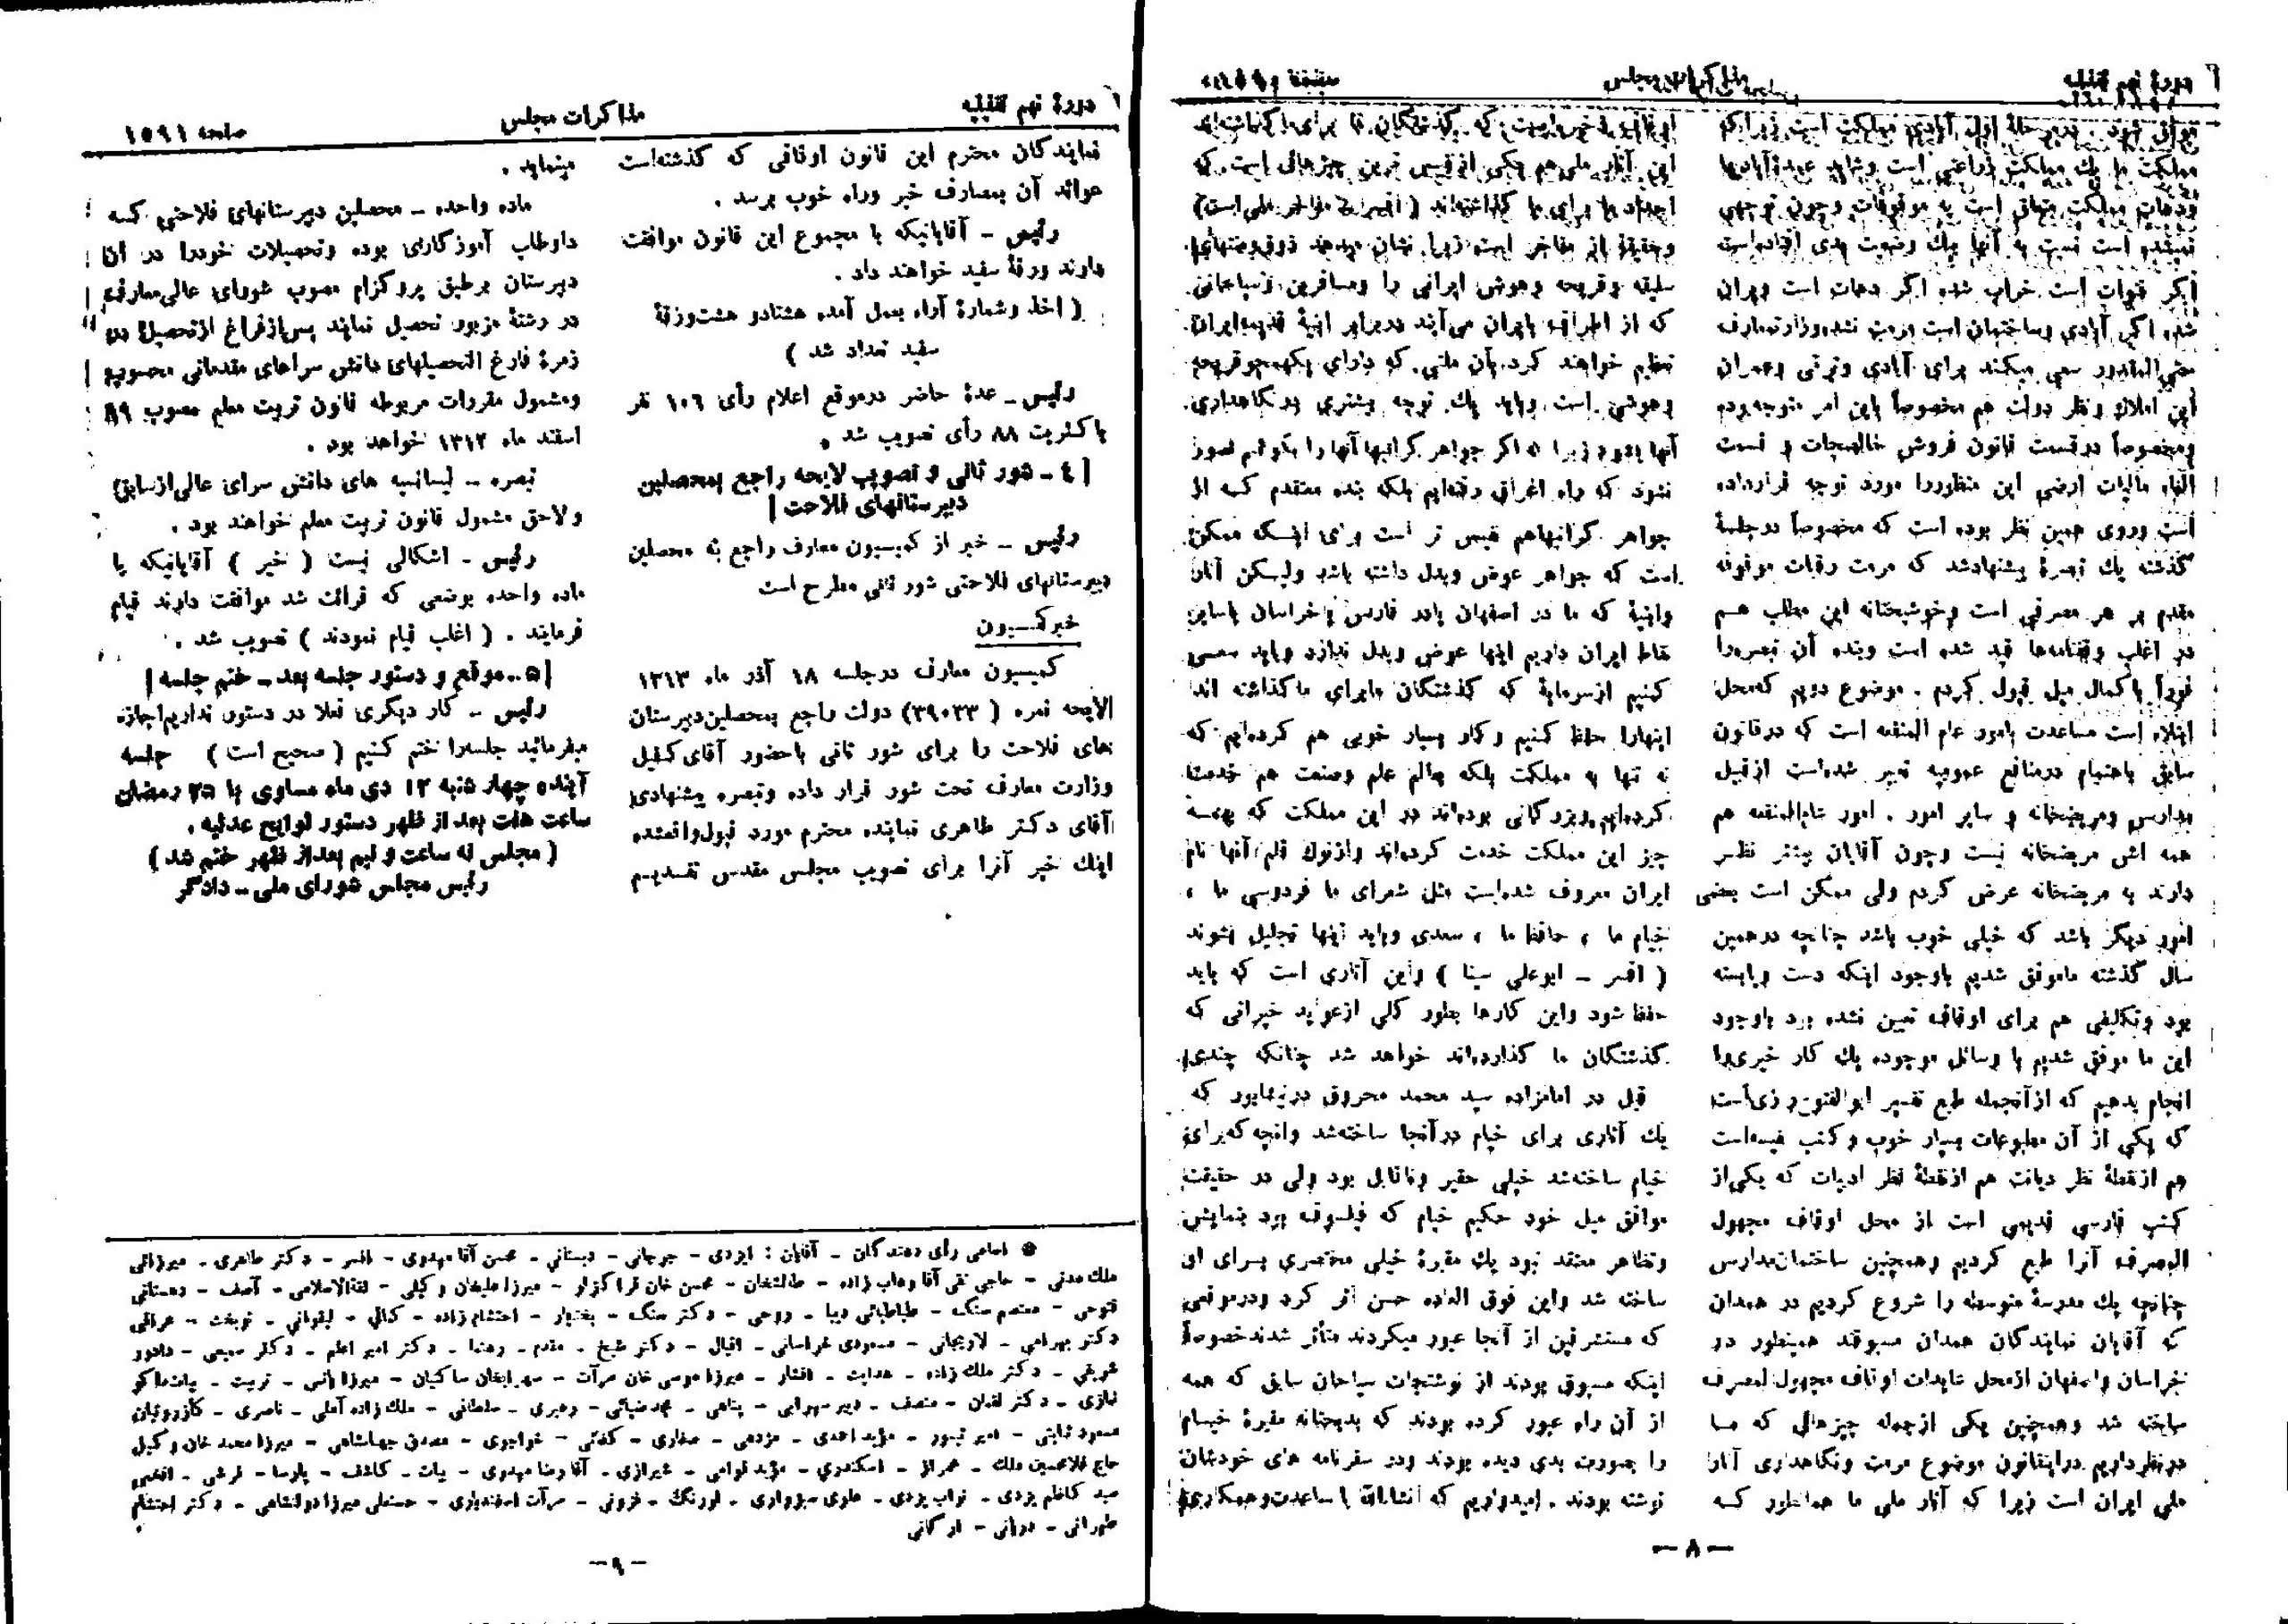 دورهٔ نهم تقنینیه
مذاکرات مجلس
مملکت ما یك مملکت زراعتی است و شاید عمدهٔ آبادیها
ودهات مملکت متعلق است به موقوفات وچون توجهی
نمیشده است نسبت به آنها یك وضعیت بدی افتاده‌است
اگر قنوات است خراب شده اگر دهات است ویران
شده اگر آبادی وساختمان است مرمت نشده وزارت‌معارف
حتی‌المقدور سعی میکند برای آبادی وترقی وعمران
این املاك ونظر دولت هم مخصوصاً باین امر متوجه‌بوده
ومخصوصاً درقسمت قانون فروش خالصجات و قسمت
الغاء مالیات ارضی این منظوررا مورد توجه قرارداده
است وروی همین نظر بوده است که مخصوصاً درجلسهٔ
گذشته یك تبصرهٔ پیشنهادشد که مرمت رقبات موقوفه
مقدم بر هر مصرفی است وخوشبختانه این مطلب هم
در اغلب وقفنامه‌ها قید شده است وبنده آن تبصره‌را
فوراً باکمال میل قبول کردم . موضوع دویم که‌محل
ابتلاء است مساعدت بامور عام المنفعه است که درقانون
سابق باهتمام درمنافع عمومیه تعبیر شده‌است ازقبیل
مدارس ومریضخانه و سایر امور . امور عام‌المنفعه هم
همه اش مریضخانه نیست وچون آقایان بیشتر نظر
دارند به مریضخانه عرض کردم ولی ممکن است بعضی
امور دیگر باشد که خیلی خوب باشد چنانچه درهمین
سال گذشته ماموفق شدیم باوجود اینکه دست وپابسته
بود وتکلیفی هم برای اوقاف تعیین نشده بود باوجود
این ما موفق شدیم با وسائل موجوده یك کار خیری‌را
انجام بدهیم که ازآنجمله طبع تفسیر ابوالفتوح رازی‌است
که یکی از آن مطبوعات بسیار خوب و کتب نفیسه‌است
هم ازنقطهٔ نظر دیانت هم ازنقطهٔ نظر ادبیات که یکی‌از
کتب فارسی قدیمی است از محل اوقاف مجهول
المصرف آنرا طبع کردیم وهمچنین ساختمان‌مدارس
چنانچه یك مدرسهٔ متوسطه را شروع کردیم در همدان
که آقایان نمایندگان همدان مسبوقند همینطور در
خراسان واصفهان ازمحل عایدات اوقاف مجهول‌المصرف
ساخته شد وهمچنین یکی ازجمله چیزهائی که ما
درنظرداریم دراینقانون موضوع مرمت ونگاهداری آثار
ملی ایران است زیرا که آثار ملی ما همانطور که
این آثار ملی هم یکی ازنفیس ترین چیزهائی است که
اجداد ما برای ما گذاشته‌اند ( افسر - مفاخر ملی است)
وحقیقةً از مفاخر است زیرا نشان میدهد ذوق‌ومنتهای
سلیقه وقریحه وهوش ایرانی را ومسافرین وسیاحانی
که از اطراف بایران می‌آیند دربرابر ابنیهٔ قدیمه‌ایران
تعظیم خواهند کرد بآن ملتی که دارای یکهمچوقریحه
وهوشی است وباید یك توجه بیشتری به‌نگاهداری
آنها بشود زیرا اگر جواهر گرانبها آنها را بگوئیم تصور
نشود که راه اغراق رفته‌ایم بلکه بنده معتقدم که از
جواهر گرانبهاهم نفیس تر است برای اینکه ممکن
است که جواهر عوض وبدل داشته باشد ولیکن آثار
وابنیهٔ که ما در اصفهان یادر فارس یاخراسان یاسایر
نقاط ایران داریم اینها عوض وبدل ندارد وباید سعی
کنیم ازسرمایهٔ که گذشتگان مابرای ماگذاشته اند
اینهارا حفظ کنیم وکار بسیار خوبی هم کرده‌ایم که
نه تنها به مملکت بلکه بعالم علم وصنعت هم خدمت
کرده‌ایم وبزرگانی بوده‌اند در این مملکت که بهمه
چیز این مملکت خدمت کرده‌اند وازنوك قلم آنها نام
ایران معروف شده‌است مثل شعرای ما فردوسی ما ،
خیام ما ، حافظ ما ، سعدی وباید اینها تجلیل بشوند
( افسر - ابوعلی سینا ) واین آثاری است که باید
حفظ شود واین کارها بطور کلی ازعواید خیراتی که
گذشتگان ما گذارده‌اند خواهد شد چنانکه چندی
قبل در امامزاده سید محمد محروق درنیشابور که
یك آثاری برای خیام درآنجا ساخته‌شد وانچه که‌برای
خیام ساخته‌شد خیلی حقیر وناقابل بود ولی در حقیقت
موافق میل خود حکیم خیام که فیلسوف بود بنمایش
وتظاهر معتقد نبود یك مقبرهٔ خیلی مختصری برای او
ساخته شد واین فوق العاده حسن اثر کرد ودرموقعی
که مستشرقین از آنجا عبور میکردند متأثر شدند خصوصاً
اینکه مسبوق بودند از نوشتجات سیاحان سابق که همه
از آن راه عبور کرده بودند که بدبختانه مقبرهٔ خیام
را بصورت بدی دیده بودند ودر سفرنامه های خودشان
نوشته بودند . امیدواریم که انشاءالله با مساعدت‌وهمکاری
— ۸ —
دورهٔ نهم تقنینیه
مذاکرات مجلس
صفحه ۱۵۹۱
نمایندگان محترم این قانون اوقافی که گذشته‌است
عوائد آن بمصارف خیر وراه خوب برسد .
رئیس - آقایانیکه با مجموع این قانون موافقت
دارند ورقهٔ سفید خواهند داد .
( اخذ وشمارهٔ آراء بعمل آمده هشتادو هشت‌ورقهٔ
سفید تعداد شد )
رئیس - عدهٔ حاضر درموقع اعلام رأی ۱۰۶ نفر
باکثریت ۸۸ رأی تصویب شد .
[ ٤ - شور ثانی و تصویب لایحه راجع بمحصلین
دبیرستانهای فلاحت ]
رئیس - خبر از کمیسیون معارف راجع به محصلین
دبیرستانهای فلاحتی شور ثانی مطرح است
خبرکمیسیون
کمیسیون معارف درجلسه ۱۸ آذر ماه ۱۳۱۳
لایحه نمره ( ۳۹۰۲۳) دولت راجع بمحصلین‌دبیرستان
های فلاحت را برای شور ثانی باحضور آقای‌کفیل
وزارت معارف تحت شور قرار داده وتبصره پیشنهادی
آقای دکتر طاهری نماینده محترم مورد قبول‌واقعشده
اینك خبر آنرا برای تصویب مجلس مقدس تقدیم
مینماید .
ماده واحده - محصلین دبیرستانهای فلاحتی که
داوطلب آموزگاری بوده وتحصیلات خودرا در آن
دبیرستان برطبق پروگرام مصوب شورای عالی‌معارف
در رشتهٔ مزبور تحصیل نمایند پس‌ازفراغ ازتحصیل در
زمرهٔ فارغ التحصیلهای دانش سراهای مقدماتی محسوب
ومشمول مقررات مربوطه قانون تربیت معلم مصوب ۱۹
اسفند ماه ۱۳۱۲ خواهد بود .
تبصره - لیسانسیه های دانش سرای عالی‌ازسابق
ولاحق مشمول قانون تربیت معلم خواهند بود .
رئیس - اشکالی نیست ( خیر ) آقایانیکه با
ماده واحده بوضعی که قرائت شد موافقت دارند قیام
فرمایند . ( اغلب قیام نمودند ) تصویب شد .
[۵ - موقع و دستور جلسه بعد - ختم جلسه ]
رئیس - کار دیگری فعلا در دستور نداریم‌اجازه
میفرمائید جلسه‌را ختم کنیم ( صحیح است ) جلسه
آینده چهار شنبه ۱۲ دی ماه مساوی با ۲۵ رمضان
ساعت هفت بعد از ظهر دستور لوایح عدلیه .
( مجلس نه ساعت و نیم بعداز ظهر ختم شد )
رئیس مجلس شورای ملی - دادگر
اسامی رأی دهندگان - آقایان : ایزدی - جرجانی - دبستانی - محسن آقا مهدوی - افسر - دکتر طاهری - میرزائی
ملك مدنی - حاجی تقی آقا وهاب زاده - طالشخان - محسن خان قراگزلو - میرزا علیخان وکیلی - ثقةالاسلامی - آصف - دهستانی
فتوحی - معتصم سنك - طباطبائی دیبا - روحی - دکتر سنك - بختیار - احتشام زاده - کمالی - لیقوانی - نوبخت - عراقی
دکتر بهرامی - لاریجانی - مسعودی خراسانی - اقبال - دکتر شیخ - مقدم - رهنما - دکتر امیر اعلم - دکتر سمیعی - دادور
شریفی - دکتر ملك زاده - هدایت - افشار - میرزا موسی خان مرآت - سهرابخان ساکنیان - میرزا یانس - تربیت - بیات‌ماکو
نمازی - دکتر لقمان - منصف - دبیر سهرابی - پناهی - محمد ضیائی - رهبری - سلطانی - ملك زاده آملی - ناصری - کازرونیان
مسعود ثابتی - امیر تیمور - مؤید احمدی - مؤدهی - صفاری - کفائی - خواجوی - مصدق جهانشاهی - میرزا محمد خان وکیل
حاج غلامحسین ملك - معمراز - اسکندری - مؤید قوامی - شیرازی - آقا رضا مهدوی - بیات - کاشف - پارسا - قرشی - افخمی
سید کاظم یزدی - نواب یزدی - علوی سبزواری - اورنگ - فزونی - مرآت اسفندیاری - حسنعلی میرزا دولتشاهی - دکتر احتشام
طهرانی - دورانی - ارکانی
— ۹ —